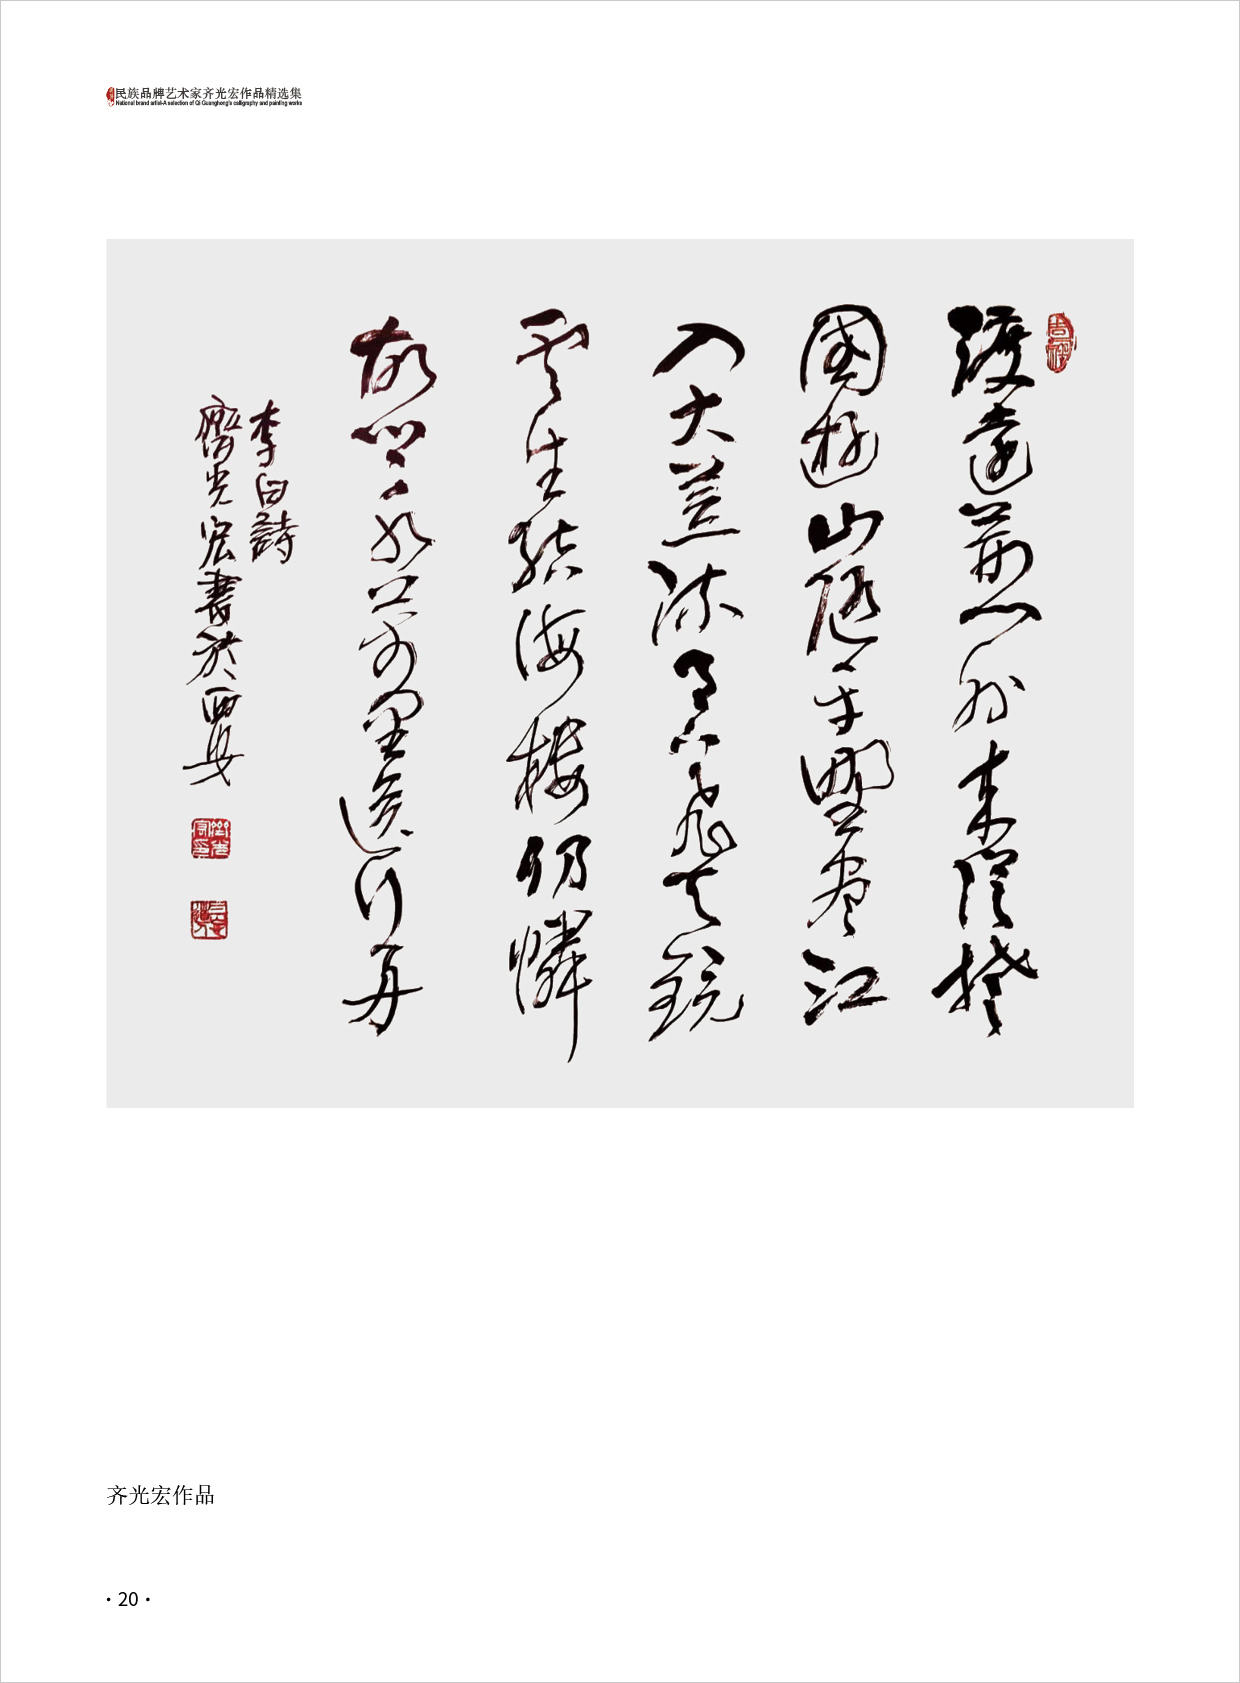 民族品牌艺术家齐光宏作品精选集
National brand artist-A selection of Qi Guanghong's calligraphy and painting works
吉祥
渡遠荊門外來從楚
國遊山隨平野盡江
入大荒流月下飛天鏡
雲生結海樓仍憐
故鄉水萬里送行舟
李白詩
齊光宏書於西安
齐光宏作品
·20·